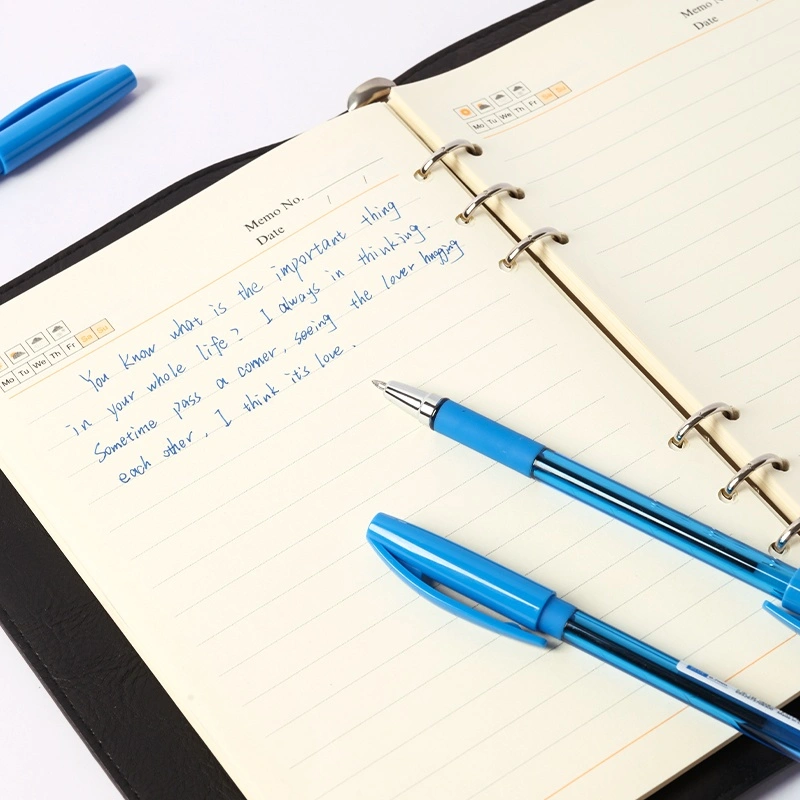 Memo No.
Date / /
Mo Tu We Th Fr Sa Su
You know what is the important thing
in your whole life? I always in thinking.
Sometime pass a corner, seeing the lover hugging
each other, I think it's love.
Memo No.
Date
Mo Tu We Th Fr Sa Su